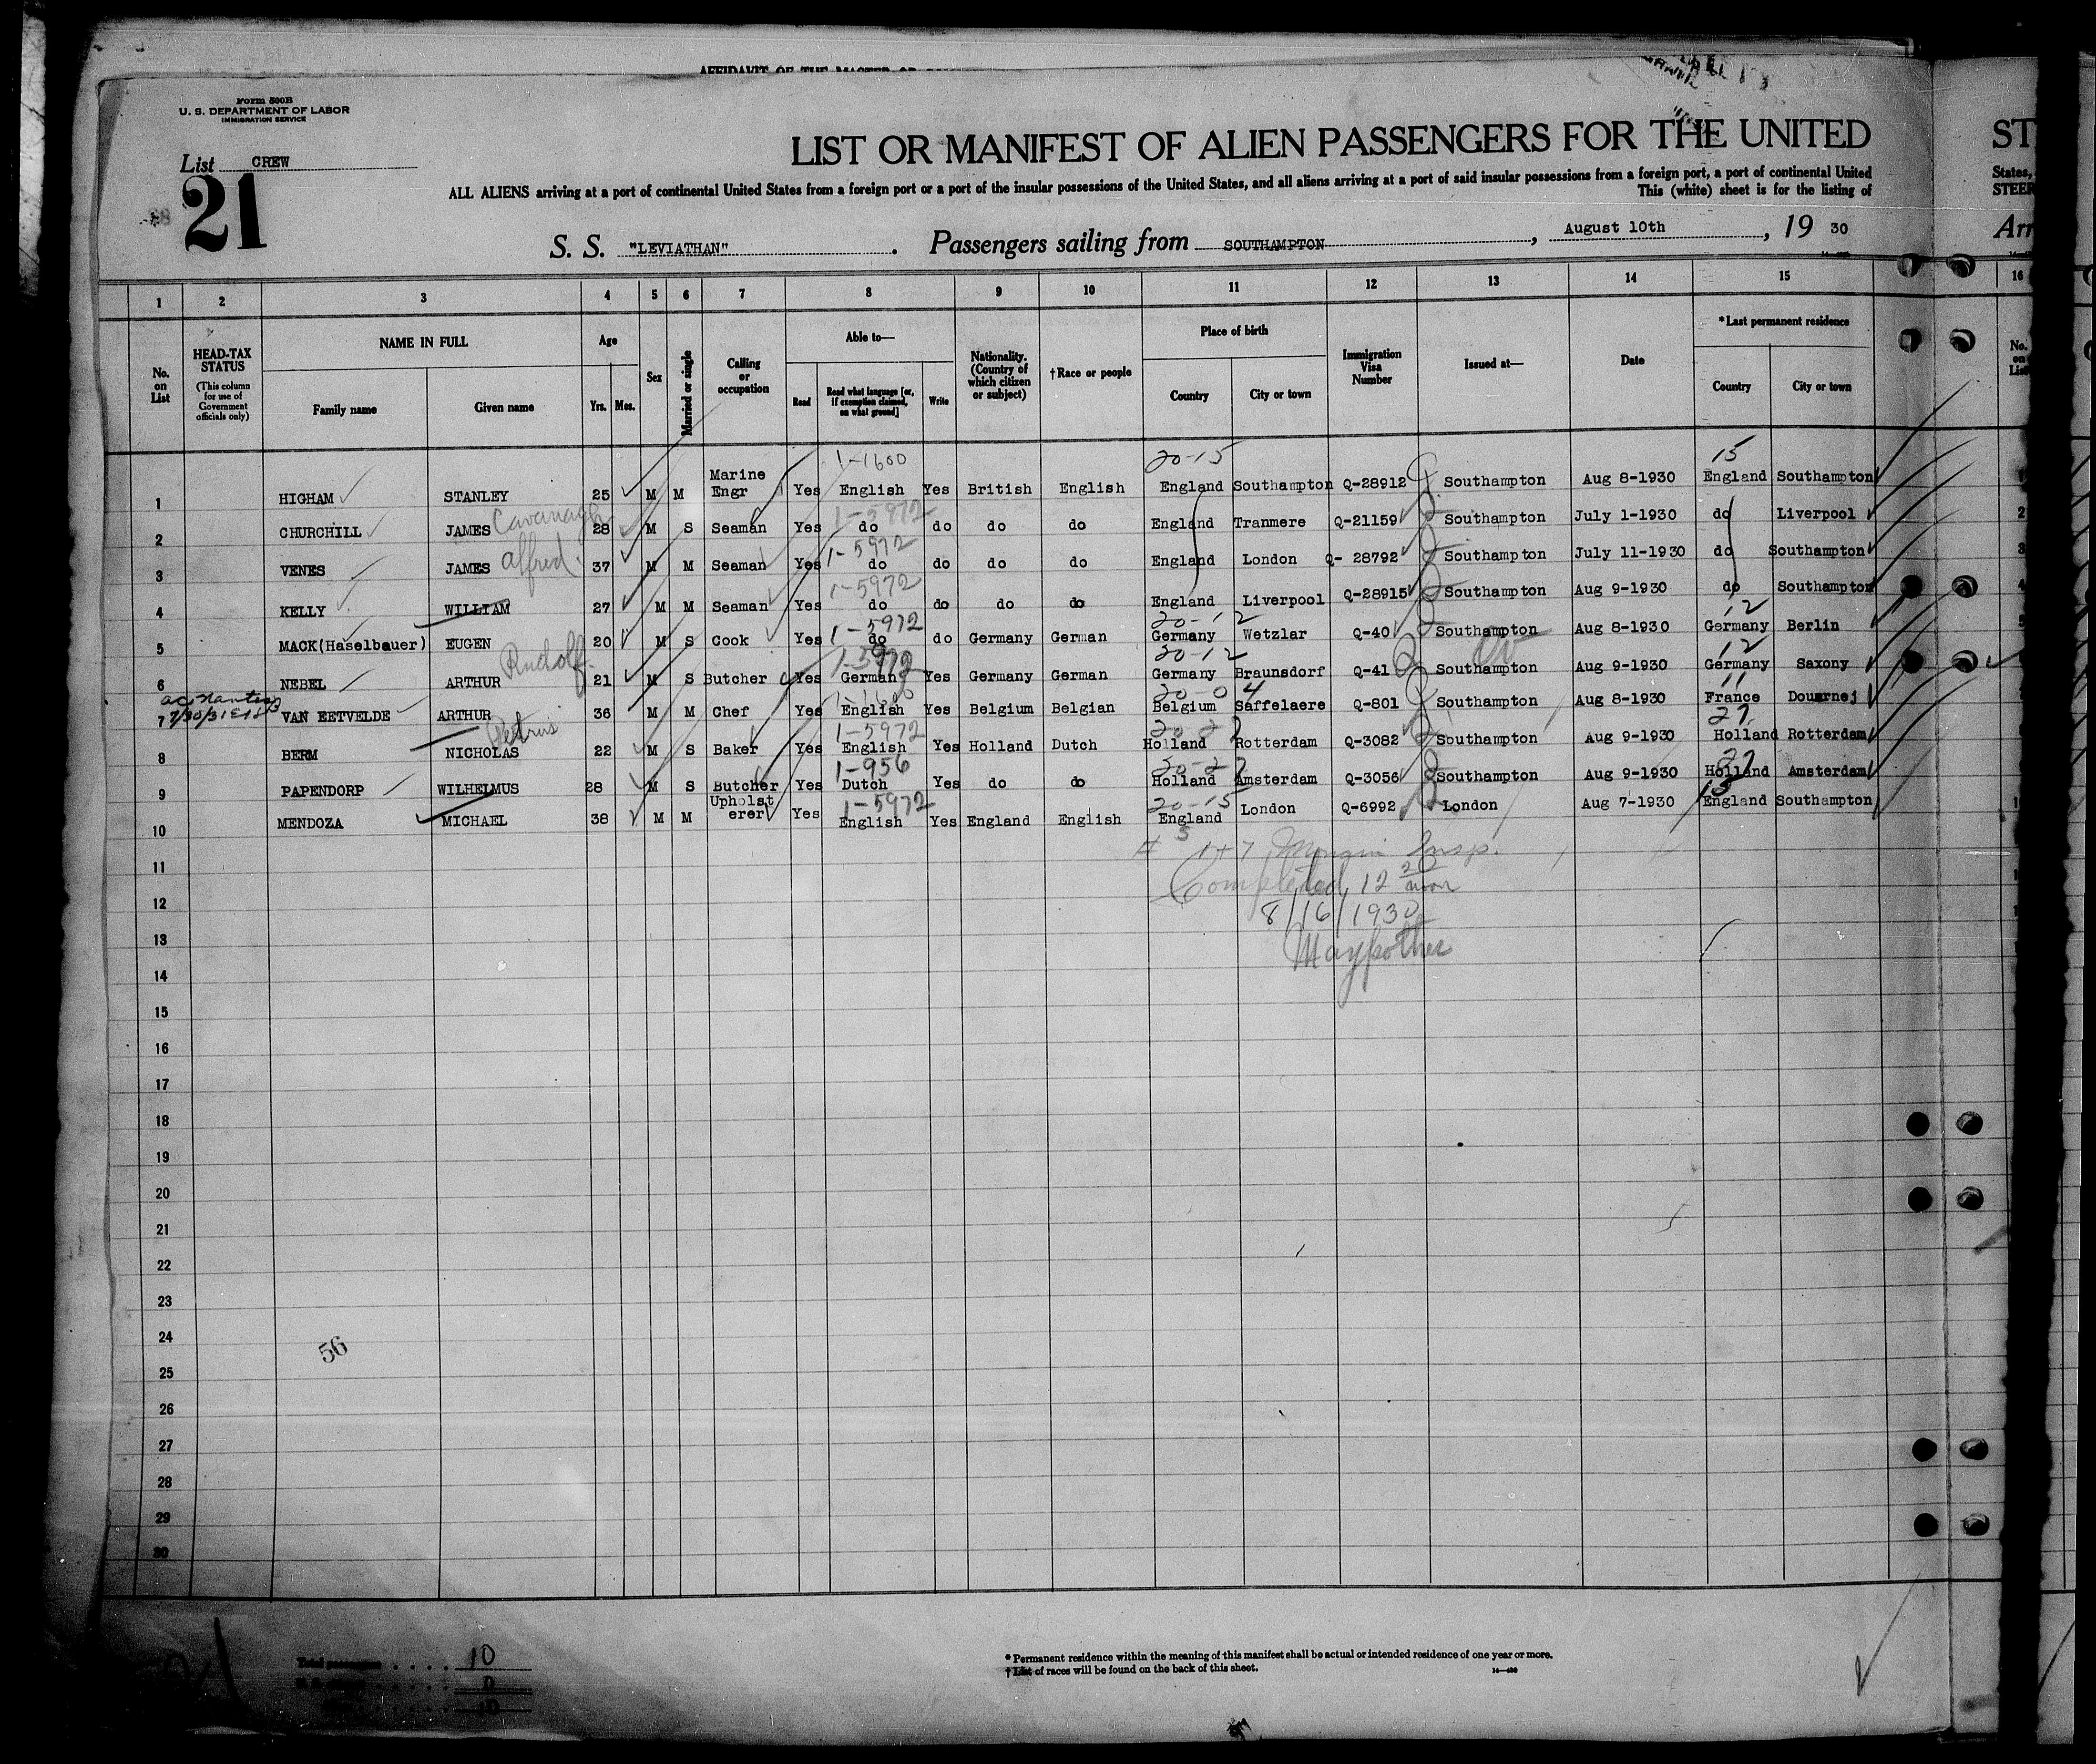 AFFIDAVIT OF THE MASTER OR
Form 500B
U. S. DEPARTMENT OF LABOR
IMMIGRATION SERVICE
List CREW
21
LIST OR MANIFEST OF ALIEN PASSENGERS FOR THE UNITED
ST
ALL ALIENS arriving at a port of continental United States from a foreign port or a port of the insular possessions of the United States, and all aliens arriving at a port of said insular possessions from a foreign port, a port of continental United
States,
This (white) sheet is for the listing of
STEER
S. S. "LEVIATHAN". Passengers sailing from SOUTHAMPTON, August 10th, 19 30
Arr
1 2 3 4 5 6 7 8 9 10 11 12 13 14 15 16
No. on List
HEAD-TAX STATUS (This column for use of Government officials only)
NAME IN FULL
Family name Given name
Age
Yrs. Mos.
Sex
Married or single
Calling or occupation
Able to—
Read
Read what language [or, if exemption claimed, on what ground]
Write
Nationality. (Country of which citizen or subject)
†Race or people
Place of birth
Country City or town
Immigration Visa Number
Issued at—
Date
*Last permanent residence
Country City or town
No. on List
1-1600 20-15 15
1 HIGHAM STANLEY 25 M M Marine Engr Yes English Yes British English England Southampton Q-28912 Southampton Aug 8-1930 England Southampton 1
Cavanagh 1-5972
2 CHURCHILL JAMES 28 M S Seaman Yes do do do do England Tranmere Q-21159 Southampton July 1-1930 do Liverpool 2
Alfred 1-5972
3 VENES JAMES 37 M M Seaman Yes do do do do England London Q- 28792 Southampton July 11-1930 do Southampton 3
1-5972
4 KELLY WILLIAM 27 M M Seaman Yes do do do do England Liverpool Q-28915 Southampton Aug 9-1930 do Southampton 4
1-5972 20-12 12
5 MACK(Haselbauer) EUGEN 20 M S Cook Yes do do Germany German Germany Wetzlar Q-40 Southampton Aug 8-1930 Germany Berlin 5
Rudolf 1-5972 20-12 12
6 NEBEL ARTHUR 21 M S Butcher Yes German Yes Germany German Germany Braunsdorf Q-41 Southampton Aug 9-1930 Germany Saxony
1-1600 20-04 11
7 VAN EETVELDE ARTHUR 36 M M Chef Yes English Yes Belgium Belgian Belgium Saffelaere Q-801 Southampton Aug 8-1930 France Douarnej
Petrus 1-5972 20-27 27
8 BERM NICHOLAS 22 M S Baker Yes English Yes Holland Dutch Holland Rotterdam Q-3082 Southampton Aug 9-1930 Holland Rotterdam
1-956 20-27 27
9 PAPENDORP WILHELMUS 28 M S Butcher Yes Dutch Yes do do Holland Amsterdam Q-3056 Southampton Aug 9-1930 Holland Amsterdam
1-5972 20-15 15
10 MENDOZA MICHAEL 38 M M Upholsterer Yes English Yes England English England London Q-6992 London Aug 7-1930 England Southampton
11
Completed 12
12
8/16/1930
13
Maypother
14
15
16
17
18
19
20
21
22
23
24
56
25
26
27
28
29
30
Total passengers 10
0
10
* Permanent residence within the meaning of this manifest shall be actual or intended residence of one year or more.
† List of races will be found on the back of this sheet.